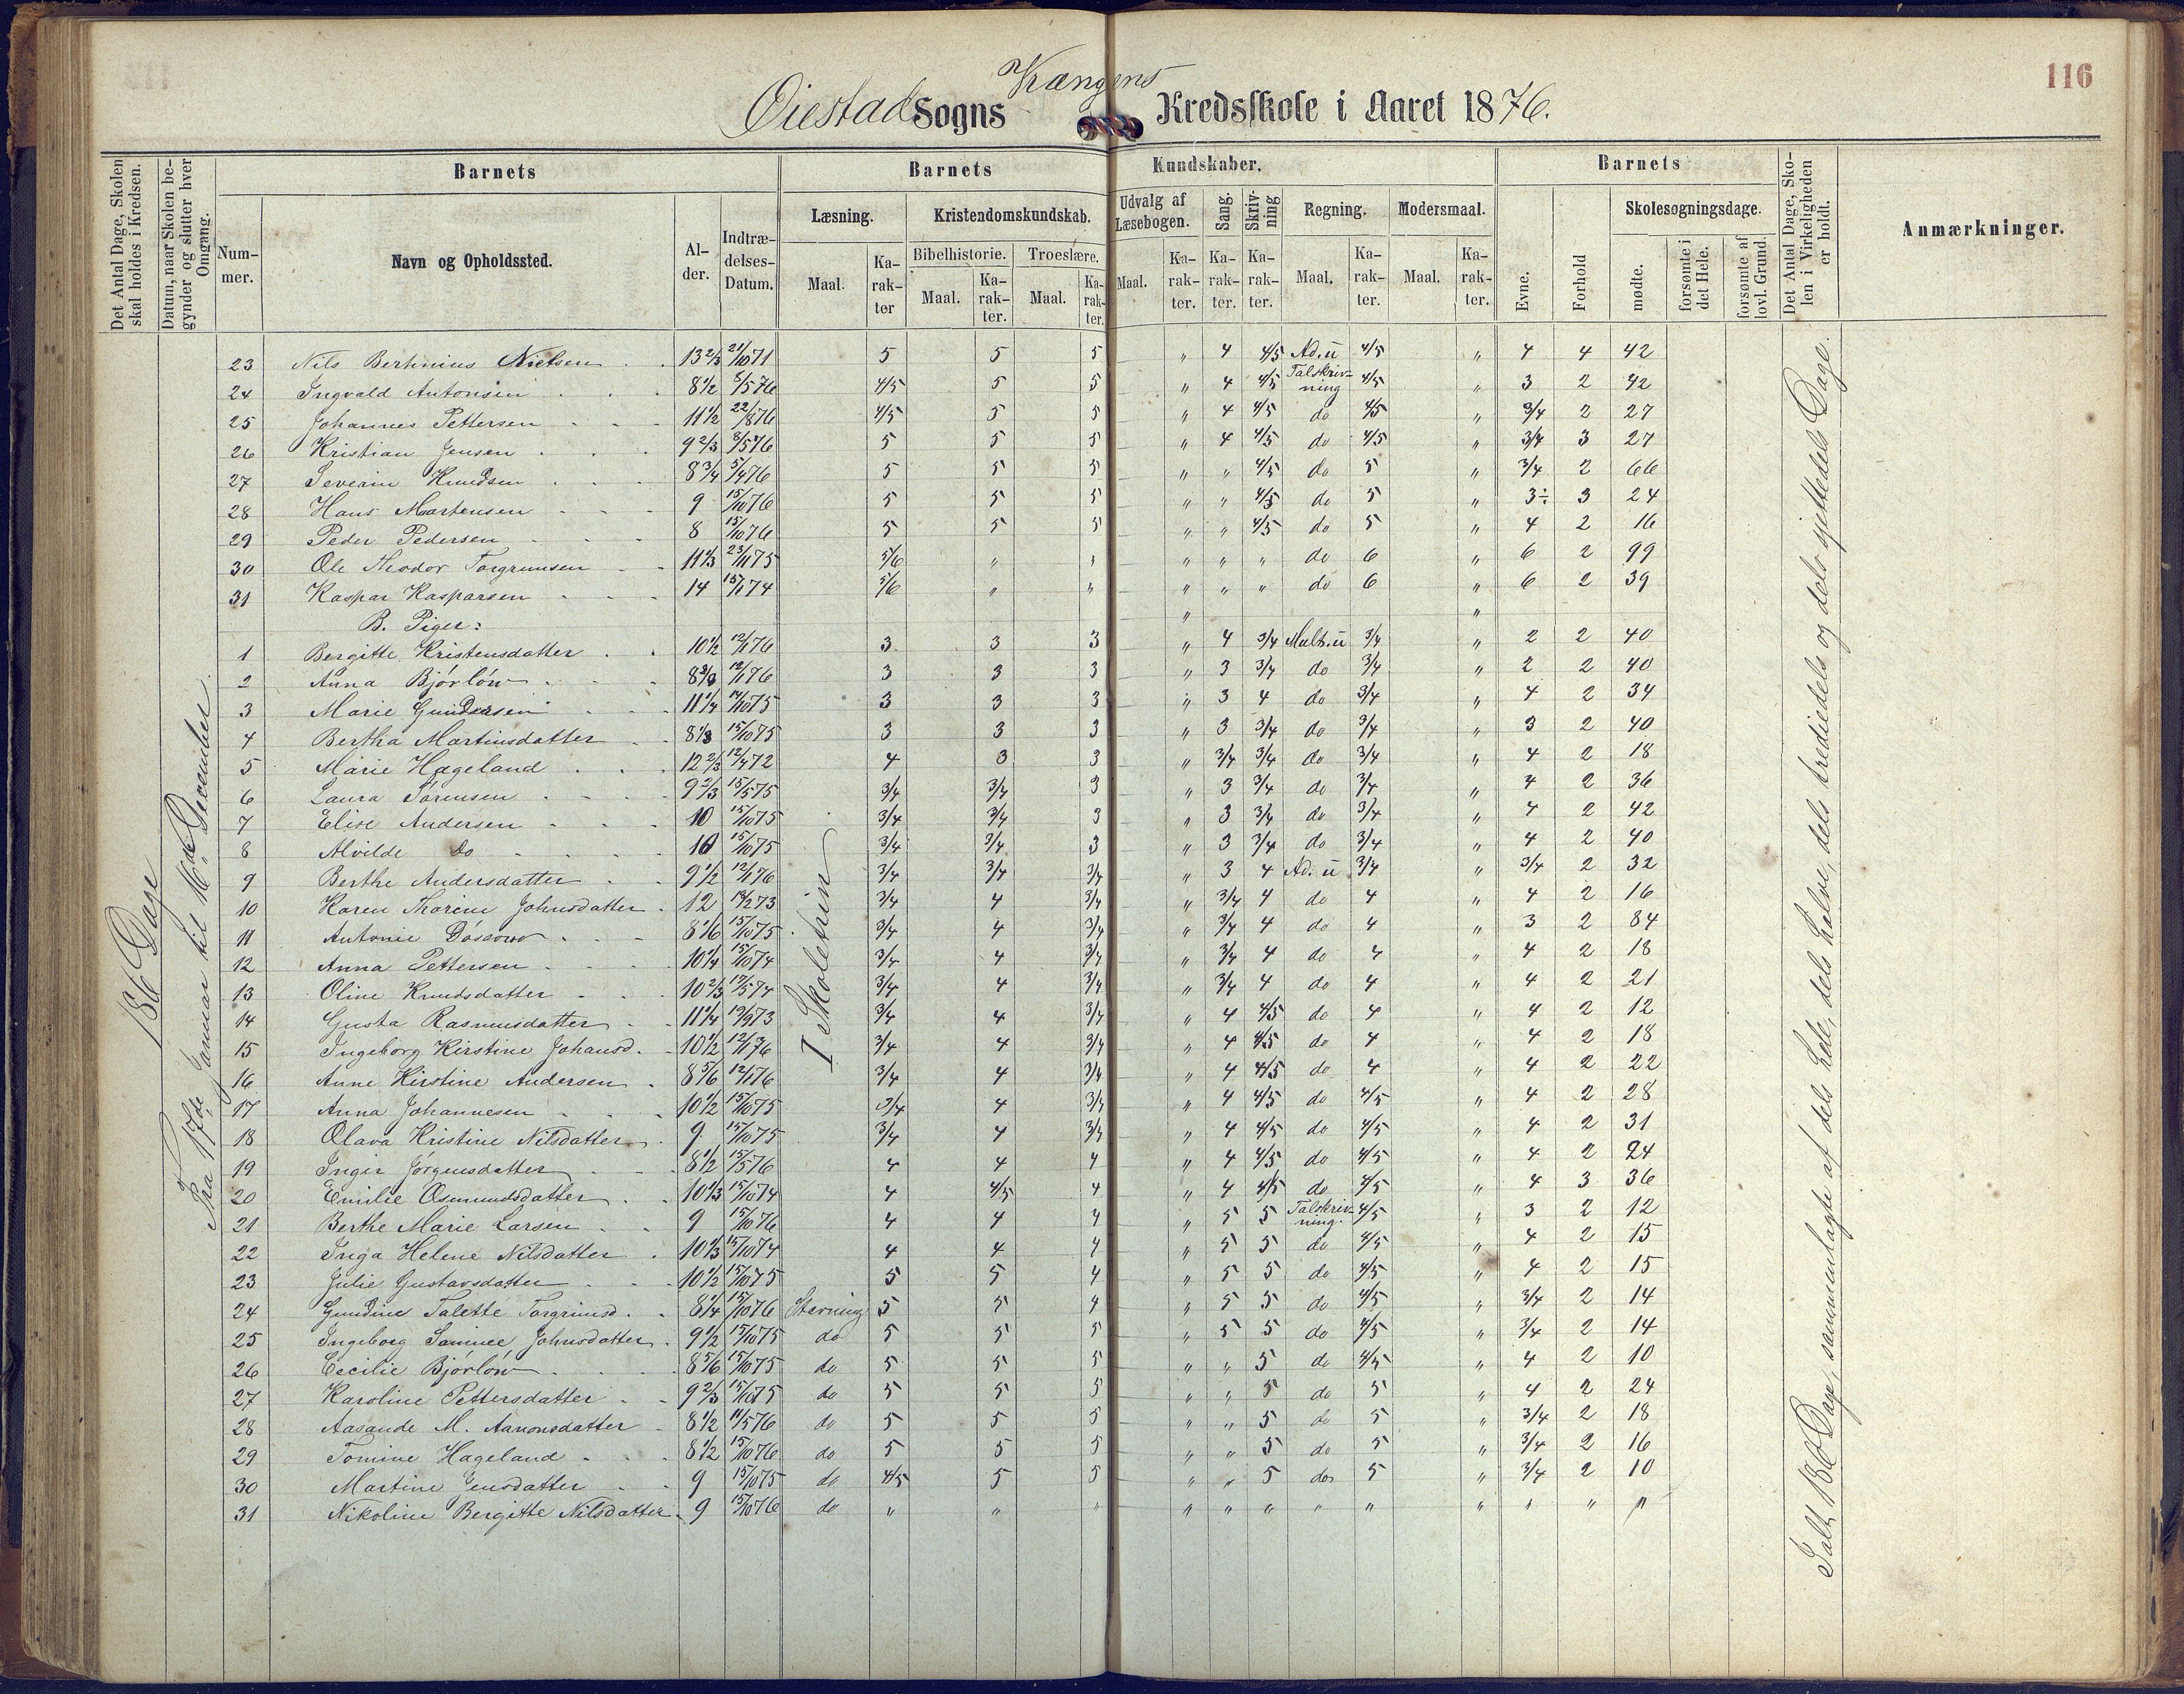 116
Øiestad Sogns Kængens Kredsskole i Aaret 1876.
Det Antal Dage, Skolen skal holdes i Kredsen.
Datum, naar Skolen begynder og slutter hver Omgang.
Barnets
Barnets
Kundskaber.
Barnets
Det Antal Dage, Skolen i Virkeligheden er holdt.
Anmærkninger.
Nummer.
Navn og Opholdssted.
Alder.
Indtrædelses-Datum.
Læsning.
Kristendomskundskab.
Udvalg af Læsebogen.
Sang.
Skrivning
Regning.
Modersmaal.
Evne.
Forhold
Skolesøgningsdage.
Bibelhistorie.
Troeslære.
mødte.
forsømte i det Hele.
forsømte af lovl. Grund.
Maal.
Karakter
Maal.
Karakter.
Maal.
Karakter.
Maal.
Karakter.
Karakter.
Karakter.
Maal.
Karakter.
Maal.
Karakter.
186 Dage
Fra 17de Januar til 16de December.
23 Nils Bertinius Nielsen 13 2/3 21/10 71 5 5 5 " 4 4/5 Ad. u 4/5 " 4 4 42
24 Ingvald Antonsen 8 1/2 8/5 76 4/5 5 5 " 4 4/5 Talskrivning 4/5 " 3 2 42
25 Johannes Pettersen 11 1/2 22/8 76 4/5 5 5 " 4 4/5 do 4/5 " 3/4 2 27
26 Kristian Jensen 9 2/3 8/5 76 5 5 5 " 4 4/5 do 4/5 " 3/4 3 27
27 Severin Knudsen 8 3/4 5/4 76 5 5 5 " " 4/5 do 5 " 3/4 2 66
28 Hans Mortensen 9 15/10 76 5 5 5 " " 4/5 do 5 " 3÷ 3 24
29 Peder Pedersen 8 15/10 76 5 5 5 " " 4/5 do 5 " 4 2 16
30 Ole Theodor Torgrimsen 11 1/3 23/11 75 5/6 " " " " " do 6 " 6 2 99
31 Kaspar Kasparsen 14 15/1 74 5/6 " " " " " do 6 " 6 2 39
B. Piger: " "
1 Bergitte Kristensdatter 10 1/2 12/1 76 3 3 3 " 4 3/4 Mult. u 3/4 " 2 2 40
2 Anna Bjórlów 8 2/3 12/1 76 3 3 3 " 3 3/4 do 3/4 " 2 2 40
3 Marie Gundersen 11 1/4 14/10 75 3 3 3 " 3 4 do 3/4 " 4 2 34
4 Bertha Martinsdatter 8 1/3 15/10 75 3 3 3 " 3 3/4 do 3/4 " 3 2 40
5 Marie Hageland 12 2/3 12/4 72 4 3 3 " 3/4 3/4 do 3/4 " 4 2 18
6 Laura Sörensen 9 2/3 15/5 75 3/4 3/4 3 " 3 3/4 do 3/4 " 4 2 36
7 Elise Andersen 10 15/10 75 3/4 3/4 3 " 3 3/4 do 3/4 " 4 2 42
8 Alvilde Do 10 15/10 75 3/4 3/4 3 " 3 3/4 do 3/4 " 4 2 40
9 Berthe Andersdatter 9 1/2 12/1 76 3/4 3/4 3/4 " 3 4 Ad. u 3/4 " 3/4 2 32
10 Karen Thorine Johnsdatter 12 13/2 73 3/4 4 3/4 " 3/4 4 do 4 " 4 2 16
11 Antonie 8 1/6 15/10 75 3/4 4 3/4 " 3/4 4 do 4 " 3 2 84
12 Anna Pettersen 10 1/4 15/10 74 3/4 4 3/4 " 3/4 4 do 4 " 4 2 18
13 Oline Knudsdatter 10 2/3 12/5 74 3/4 4 3/4 " 3/4 4 do 4 " 4 2 21
14 Gusta Rasmusdatter 11 1/4 19/9 73 3/4 4 3/4 " 4 4/5 do 4 " 4 2 12
15 Ingeborg Kirstine Johansd. 10 1/2 12/1 76 3/4 4 3/4 " 4 4/5 do 4 " 4 2 18
16 Anne Kirstine Andersen 8 5/6 12/1 76 3/4 4 3/4 " 4 4/5 do 4 " 4 2 22
17 Anna Johannesen 10 1/2 15/10 75 3/4 4 3/4 " 4 4/5 do 4/5 " 4 2 28
18 Olava Kristine Nilsdatter 9 15/10 75 3/4 4 3/4 " 4 4/5 do 4/5 " 4 2 31
19 Inger Jörgensdatter 8 1/2 15/5 76 4 4 4 " 4 4/5 do 4/5 " 4 2 24
20 Emilie Osmundsdatter 10 1/3 15/10 74 4 4/5 4 " 4 4/5 do 4/5 " 4 3 36
21 Berthe Marie Larsen 9 15/10 76 4 4 4 " 5 5 Talskrivning. 4/5 " 3 2 12
22 Inga Helene Nilsdatter 10 1/3 15/10 74 4 4 4 " 5 5 do 4/5 " 4 2 15
23 Julie Gustavsdatter 10 1/2 15/10 75 5 5 4 " 5 5 do 4/5 " 4 2 15
24 Gundine Talette Torgrimsd. 8 1/4 15/10 76 Stavning 5 5 4 " 5 5 do 4/5 " 3/4 2 14
25 Ingeborg Johnsdatter 9 1/2 15/10 75 do 5 5 5 " 5 5 do 4/5 " 3/4 2 14
26 Cecilie Bjórlów 8 5/6 15/10 75 do 5 5 5 " " 5 do 4/5 " 4 2 10
27 Karoline Pettersdatter 9 2/3 15/10 75 do 5 5 5 " " 5 do 5 " 4 2 24
28 Aasaude M. Aanonsdatter 8 1/2 11/5 76 do 5 5 5 " " 5 do 5 " 3/4 2 18
29 Tomine Hageland 8 1/2 15/10 76 do 5 5 5 " " 5 do 5 " 3/4 2 16
30 Martine Jensdatter 9 15/10 75 do 4/5 5 5 " " 5 do 5 " 3/4 2 10
31 Nikoline Bergitte Nilsdatter 9 15/10 76 do " " " " " " " " " " " "
I Skoletrin
Ialt 186 Dage, sammenlagte af dels hele, dels halve, dels trediedels og dels sjettedels Dage.